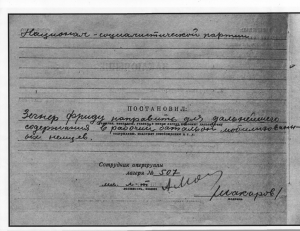 Национал-социалистической партии
ПОСТАНОВИЛ:
Зегнер Фриду направить для дальнейшего
содержания в рабочий батальон мобилизован-
ных немцев.
Сотрудник опергруппы
лагеря № 507
мл. л-т
/Макаров/